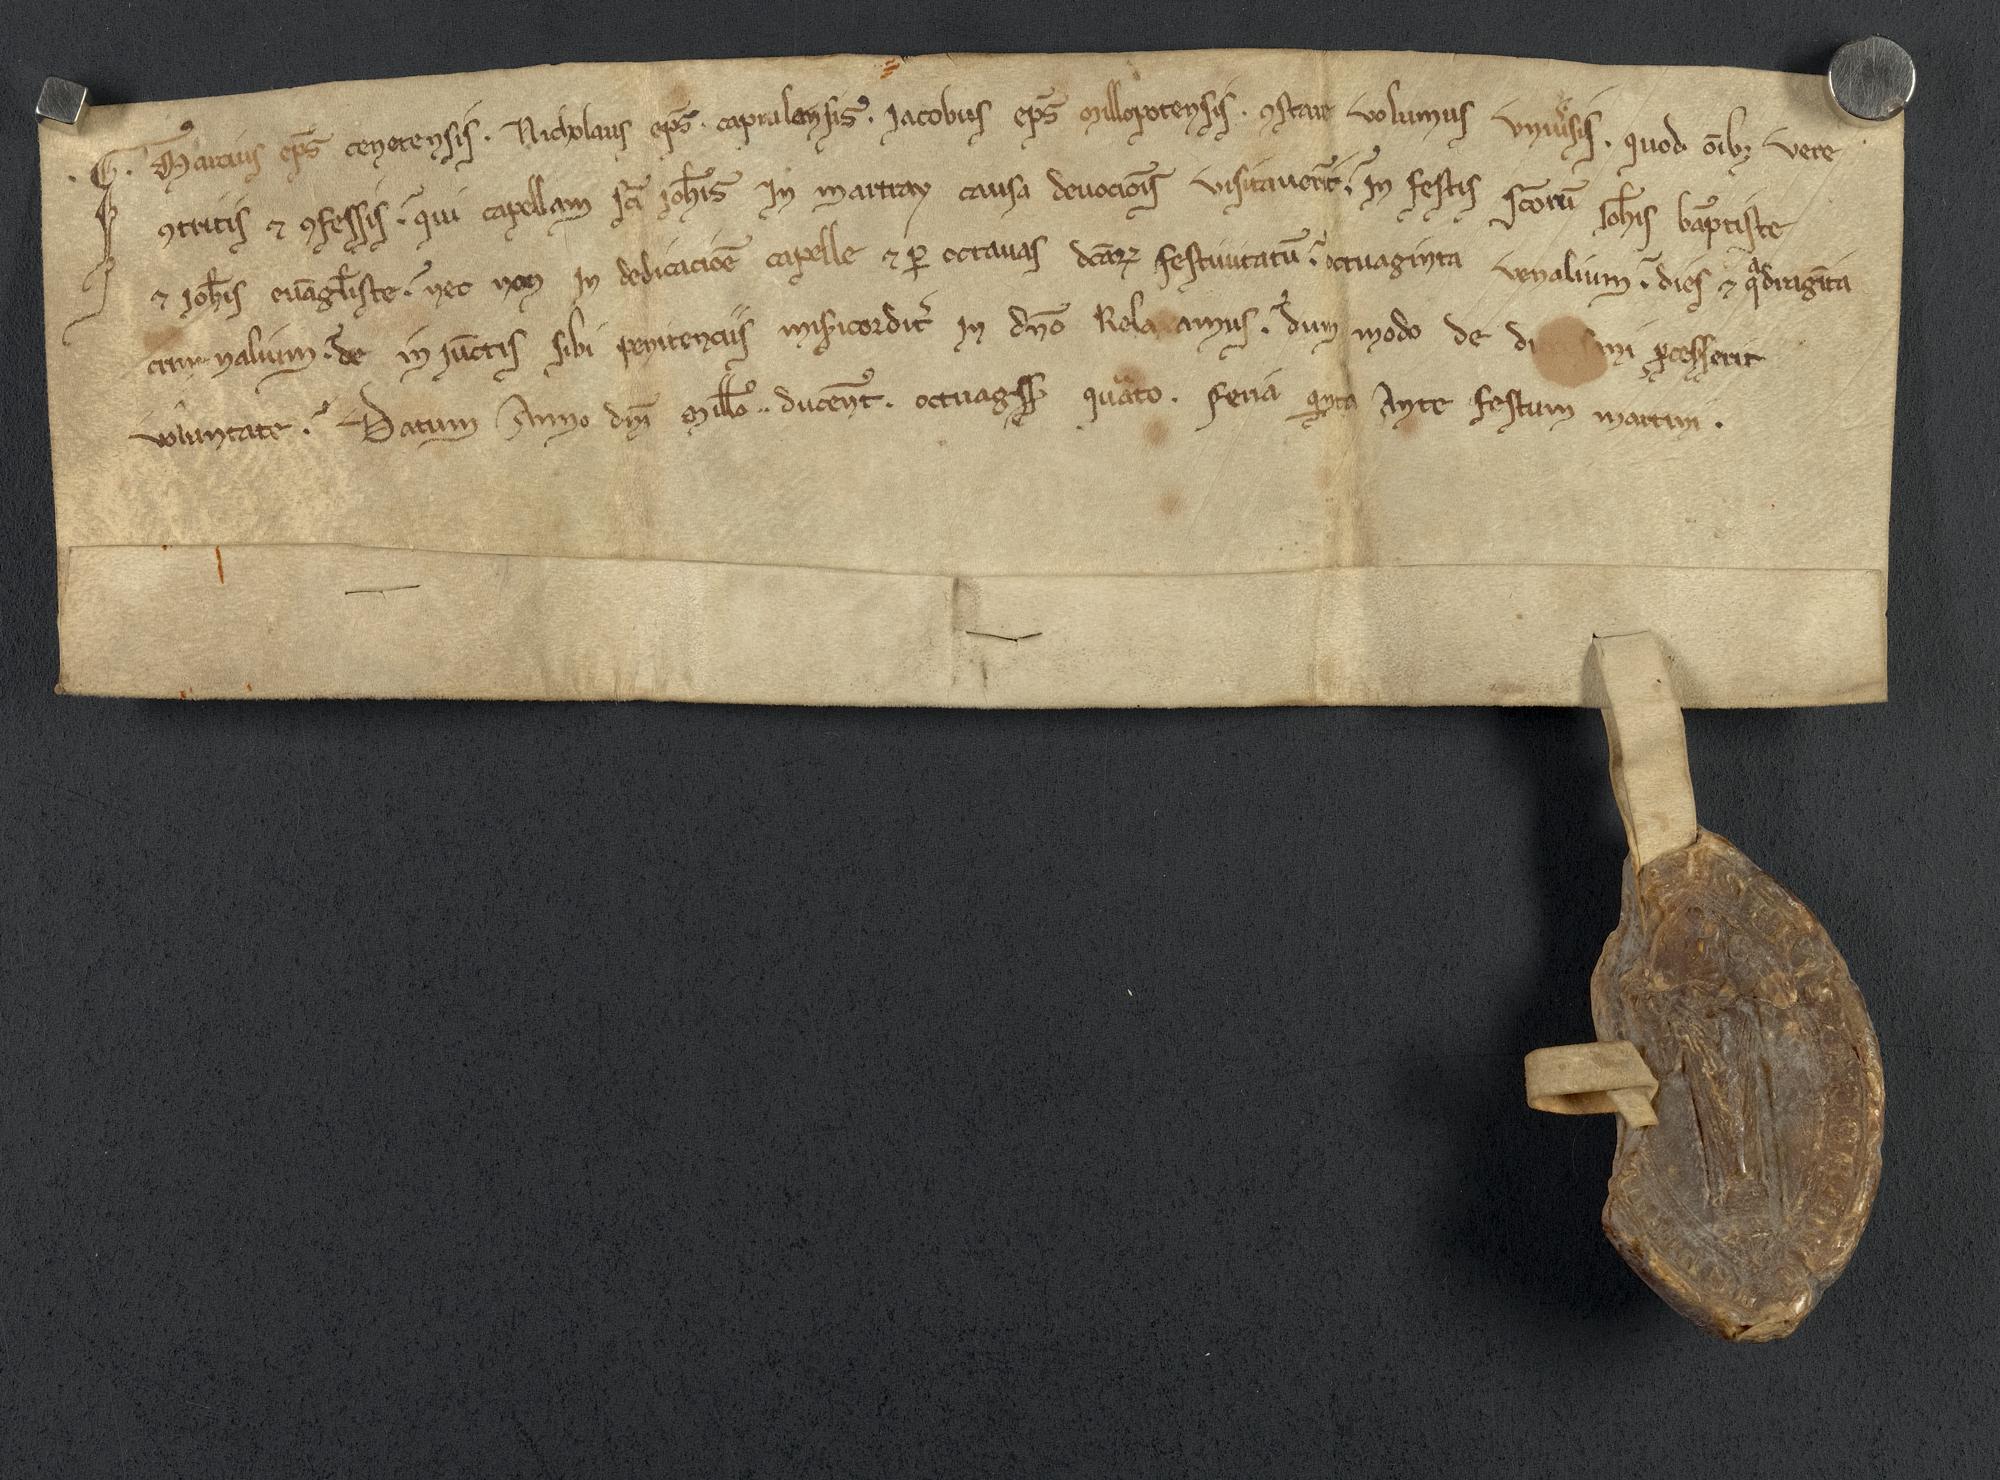 . G. Marcus ep̄s cenetensis. Nicholaus ep̄s. caprulensis. Jacobus ep̄s Millopotensis. ꝯstare volumus vniuͤsis. quod oīb; vere
ꝯtritis ⁊ ꝯfessis. qui capellam sc̄i Joh̄is in martray causa deuocīois visitauerīt. in festis sc̄orū Joh̄is baptiste
⁊ Joh̄is euāgl̄iste. nec non in dedicacioē capelle ⁊ ꝑ octauas dc̄aꝝ festiuitatū. octuaginta venalium. dies ⁊ qᵃdragīta
criminalium. de iniūctis sibi penitenciis mis̄icordit̄ in dn̄o Relaxamus. dum modo de ꝓcesserit
voluntate. Datum Anno dn̄i Mill̄o .. ducent̄. octuaḡ qᵃrto. feria qⁱnta Ante festum martini.